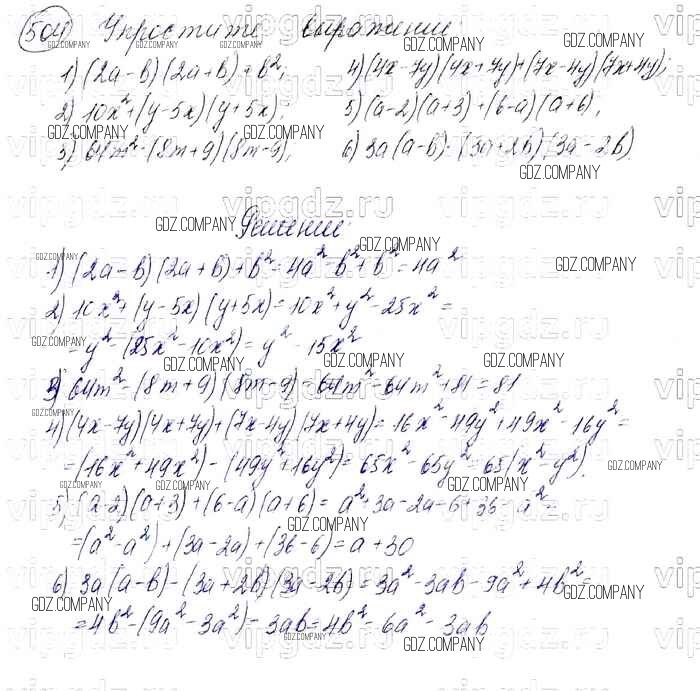 504 Упростите выражение
1) (2a-b)(2a+b)+b²; 4) (4x-7y)(4x+7y)+(7x-4y)(7x+4y);
2) 10x²+(y-5x)(y+5x); 5) (a-2)(a+3)+(6-a)(a+6);
3) 64m²-(8m+9)(8m-9); 6) 3a(a-b)-(3a+2b)(3a-2b).
Решение
1) (2a-b)(2a+b)+b²=4a²-b²+b²=4a²
2) 10x²+(y-5x)(y+5x)=10x²+y²-25x²=
=y²-(25x²-10x²)=y²-15x²
3) 64m²-(8m+9)(8m-9)=64m²-64m²+81=81
4) (4x-7y)(4x+7y)+(7x-4y)(7x+4y)=16x²-49y²+49x²-16y²=
=(16x²+49x²)-(49y²+16y²)=65x²-65y²=65(x²-y²).
5) (a-2)(a+3)+(6-a)(a+6)=a²+3a-2a-6+36-a²=
=(a²-a²)+(3a-2a)+(36-6)=a+30
6) 3a(a-b)-(3a+2b)(3a-2b)=3a²-3ab-9a²+4b²=
=4b²-(9a²-3a²)-3ab=4b²-6a²-3ab